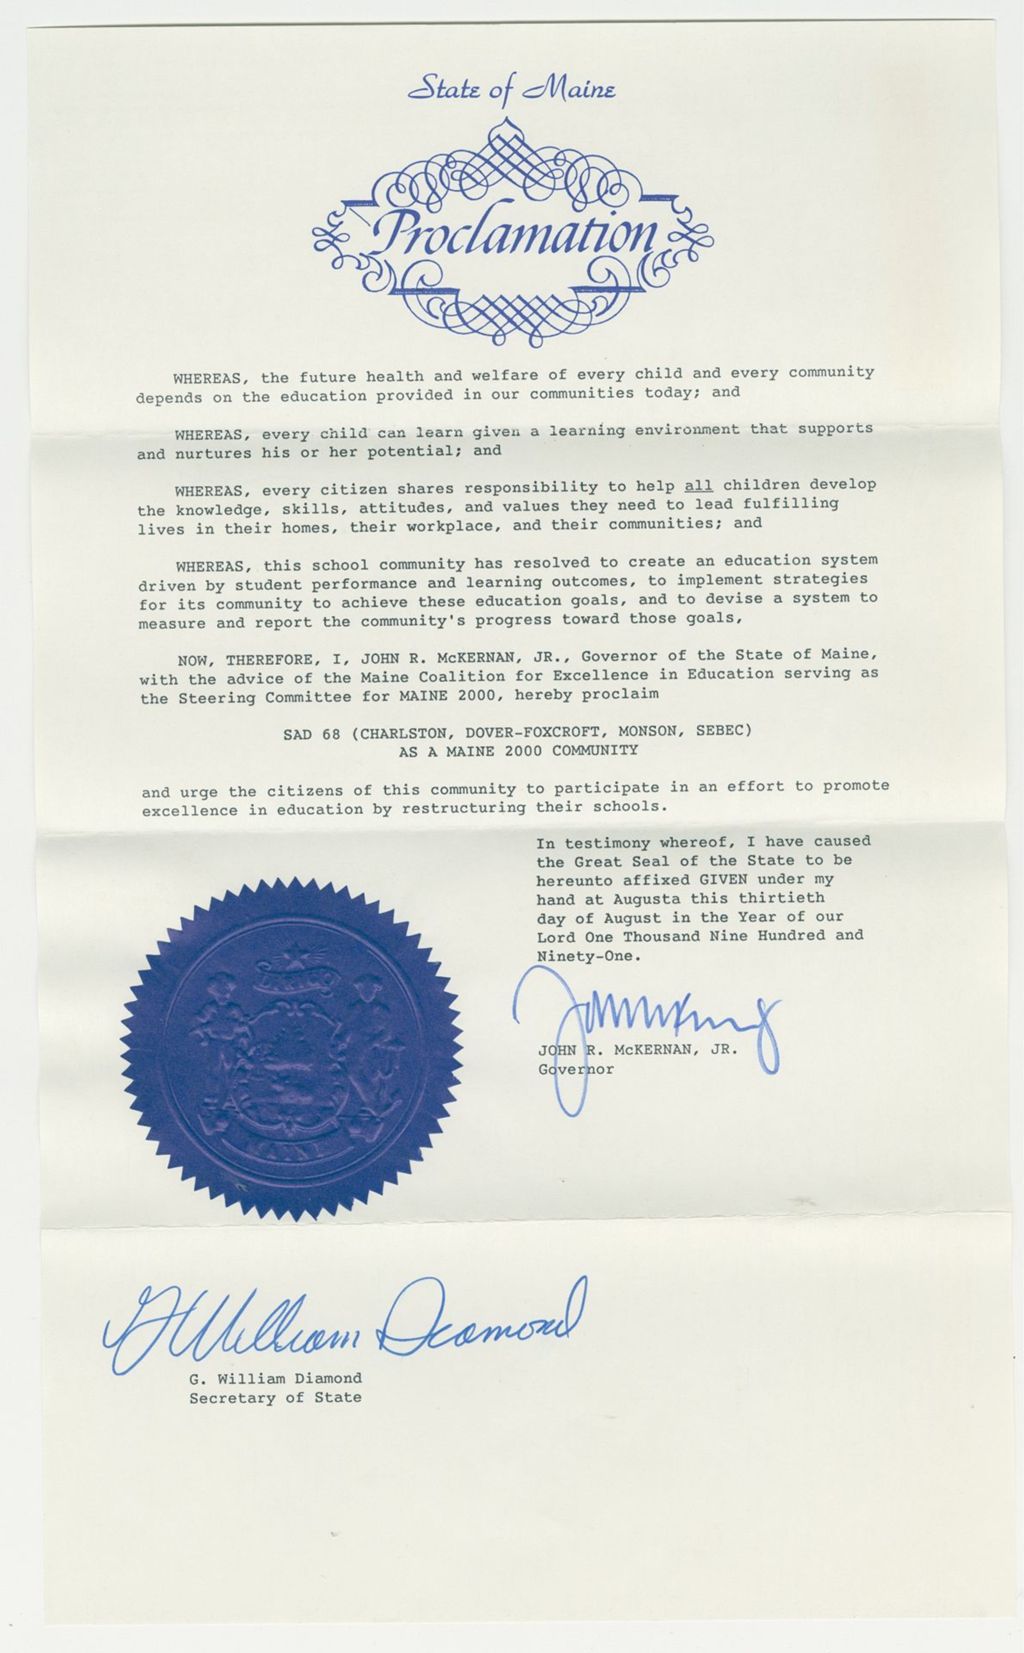 State of Maine
Proclamation
WHEREAS, the future health and welfare of every child and every community
depends on the education provided in our communities today; and
WHEREAS, every child can learn given a learning environment that supports
and nurtures his or her potential; and
WHEREAS, every citizen shares responsibility to help all children develop
the knowledge, skills, attitudes, and values they need to lead fulfilling
lives in their homes, their workplace, and their communities; and
WHEREAS, this school community has resolved to create an education system
driven by student performance and learning outcomes, to implement strategies
for its community to achieve these education goals, and to devise a system to
measure and report the community's progress toward those goals,
NOW, THEREFORE, I, JOHN R. McKERNAN, JR., Governor of the State of Maine,
with the advice of the Maine Coalition for Excellence in Education serving as
the Steering Committee for MAINE 2000, hereby proclaim
SAD 68 (CHARLSTON, DOVER-FOXCROFT, MONSON, SEBEC)
AS A MAINE 2000 COMMUNITY
and urge the citizens of this community to participate in an effort to promote
excellence in education by restructuring their schools.
In testimony whereof, I have caused
the Great Seal of the State to be
hereunto affixed GIVEN under my
hand at Augusta this thirtieth
day of August in the Year of our
Lord One Thousand Nine Hundred and
Ninety-One.
JOHN R. McKERNAN, JR.
Governor
DIRIGO
MAINE
G William Diamond
G. William Diamond
Secretary of State